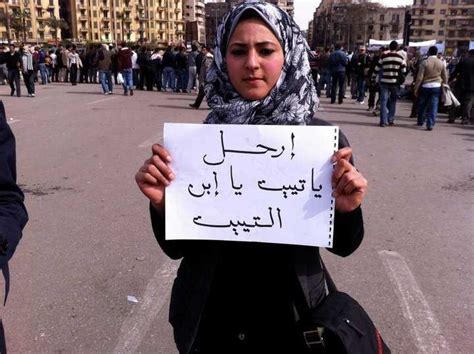 إرحل
ياتييت يا إبن
التييت